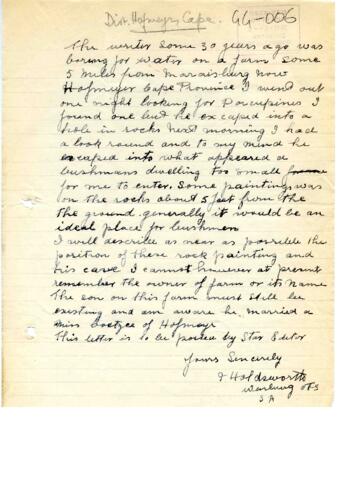 Dist. Hofmeyr, Cape. GG-006
The writer some 30 years ago was
boring for water on a farm some
5 miles from Maraisburg now
Hofmeyr Cape Province I went out
one night looking for Porcupines I
found one but he escaped into a
hole in rocks next morning I had
a look round and to my mind he
escaped into what appeared a
bushmans dwelling too small
for me to enter. Some paintings was
on the rocks about 5 feet from the
the ground generally it would be an
ideal place for bushmen
I will describe as near as possible the
position of these rock painting and
his cave I cannot however at present
remember the owner of farm or its name
The son on this farm must still be
existing and am aware he married a
Miss Coetzee of Hofmeyr
This letter is to be posted by Star Editor
Yours Sincerely
Holdsworth
OFS
SA